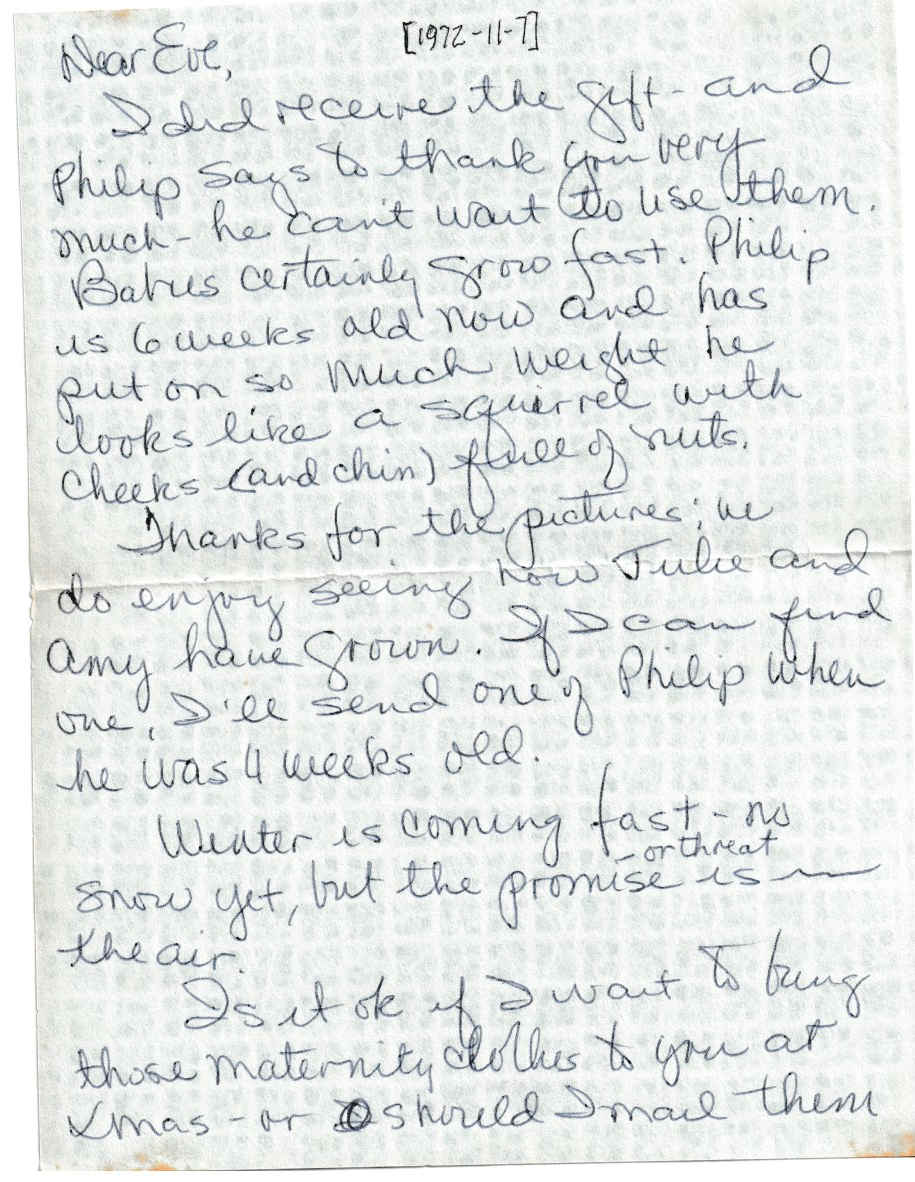 [1972-11-7]
Dear Eve,
I did receive the gift - and
Philip says to thank you very
much - he can't wait to use them.
Babies certainly grow fast. Philip
is 6 weeks old now and has
put on so much weight he
looks like a squirrel with
cheeks (and chin) full of nuts.
Thanks for the pictures; we
do enjoy seeing how Julie and
Amy have grown. If I can find
one, I'll send one of Philip when
he was 4 weeks old.
Winter is coming fast - no
snow yet, but the promise - or threat is in
the air.
Is it ok if I wait to bring
those maternity clothes to you at
Xmas - or should I mail them